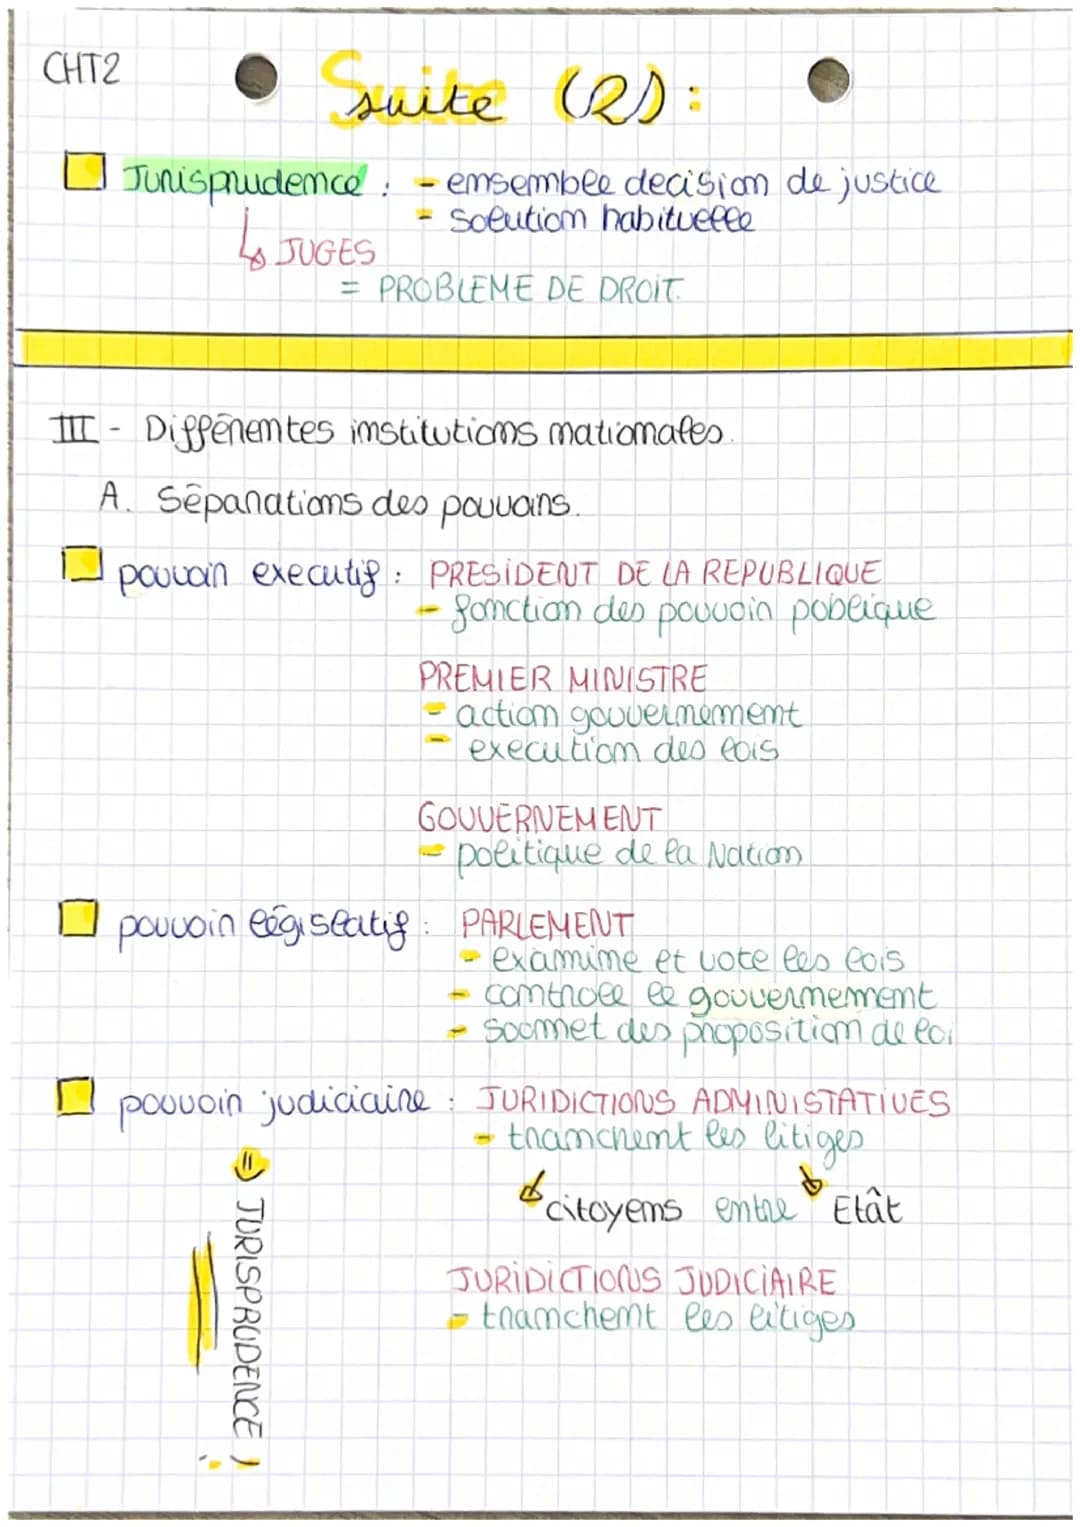 CHT2
Suite (2) :
Jurisprudence : - ensemble decision de justice
- solution habituelle
↳ JUGES
= PROBLEME DE DROIT.
III - Différentes institutions nationales.
A. Séparations des pouvoirs.
pouvoir executif : PRESIDENT DE LA REPUBLIQUE
- fonction des pouvoir poblique
PREMIER MINISTRE
- action gouvernement
- execution des lois
GOUVERNEMENT
- politique de la Nation
pouvoir législatif : PARLEMENT
- examine et vote les lois
- controle le gouvernement
- soomet des proposition de loi
pouvoir judiciaire : JURIDICTIONS ADMINISTATIVES
- tranchent les litiges
citoyens entre Etât
JURIDICTIONS JUDICIAIRE
- tranchent les litiges
= JURISPRUDENCE !